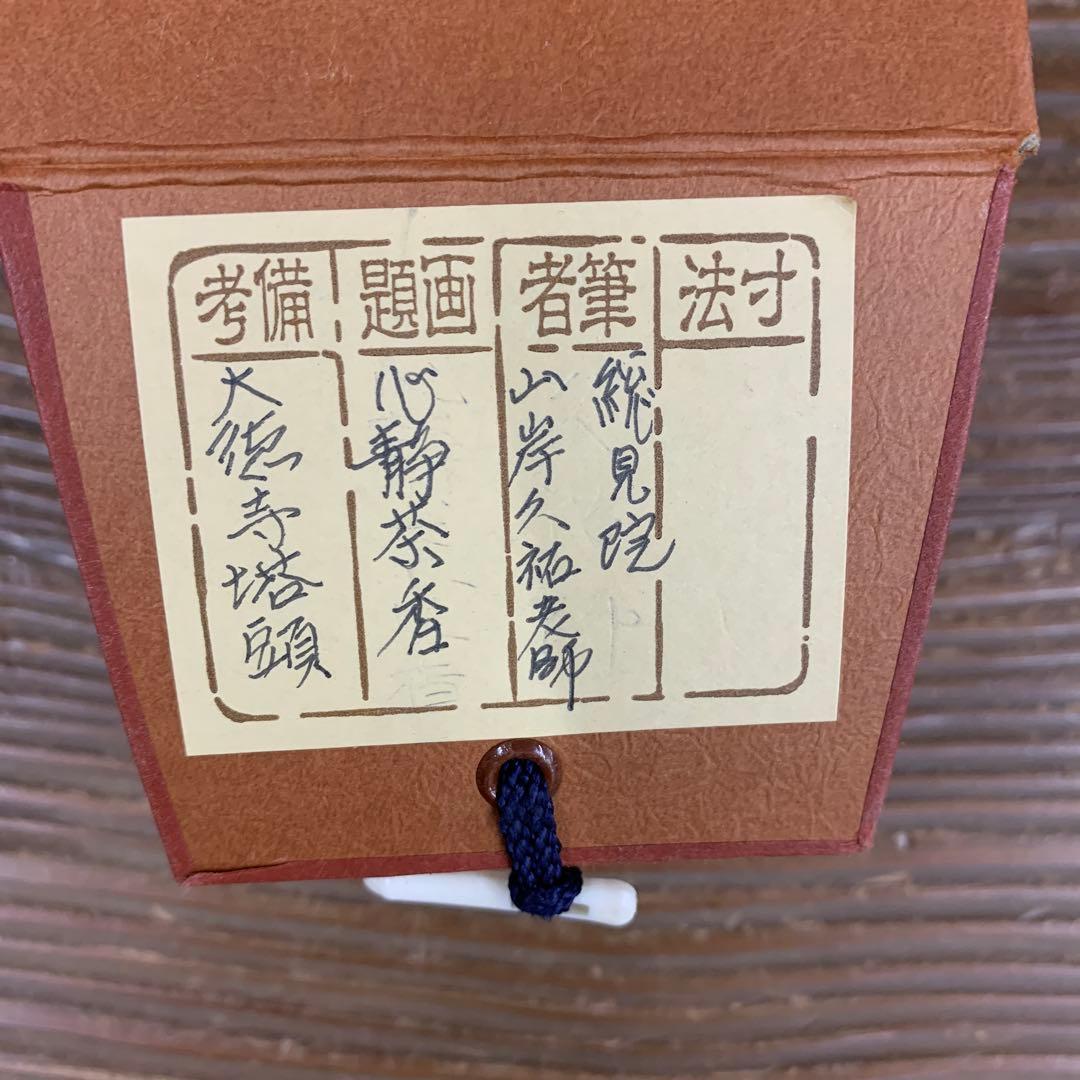 寸法
筆者
総見院
山岸久祐老師
画題
心静茶香
備考
大徳寺塔頭